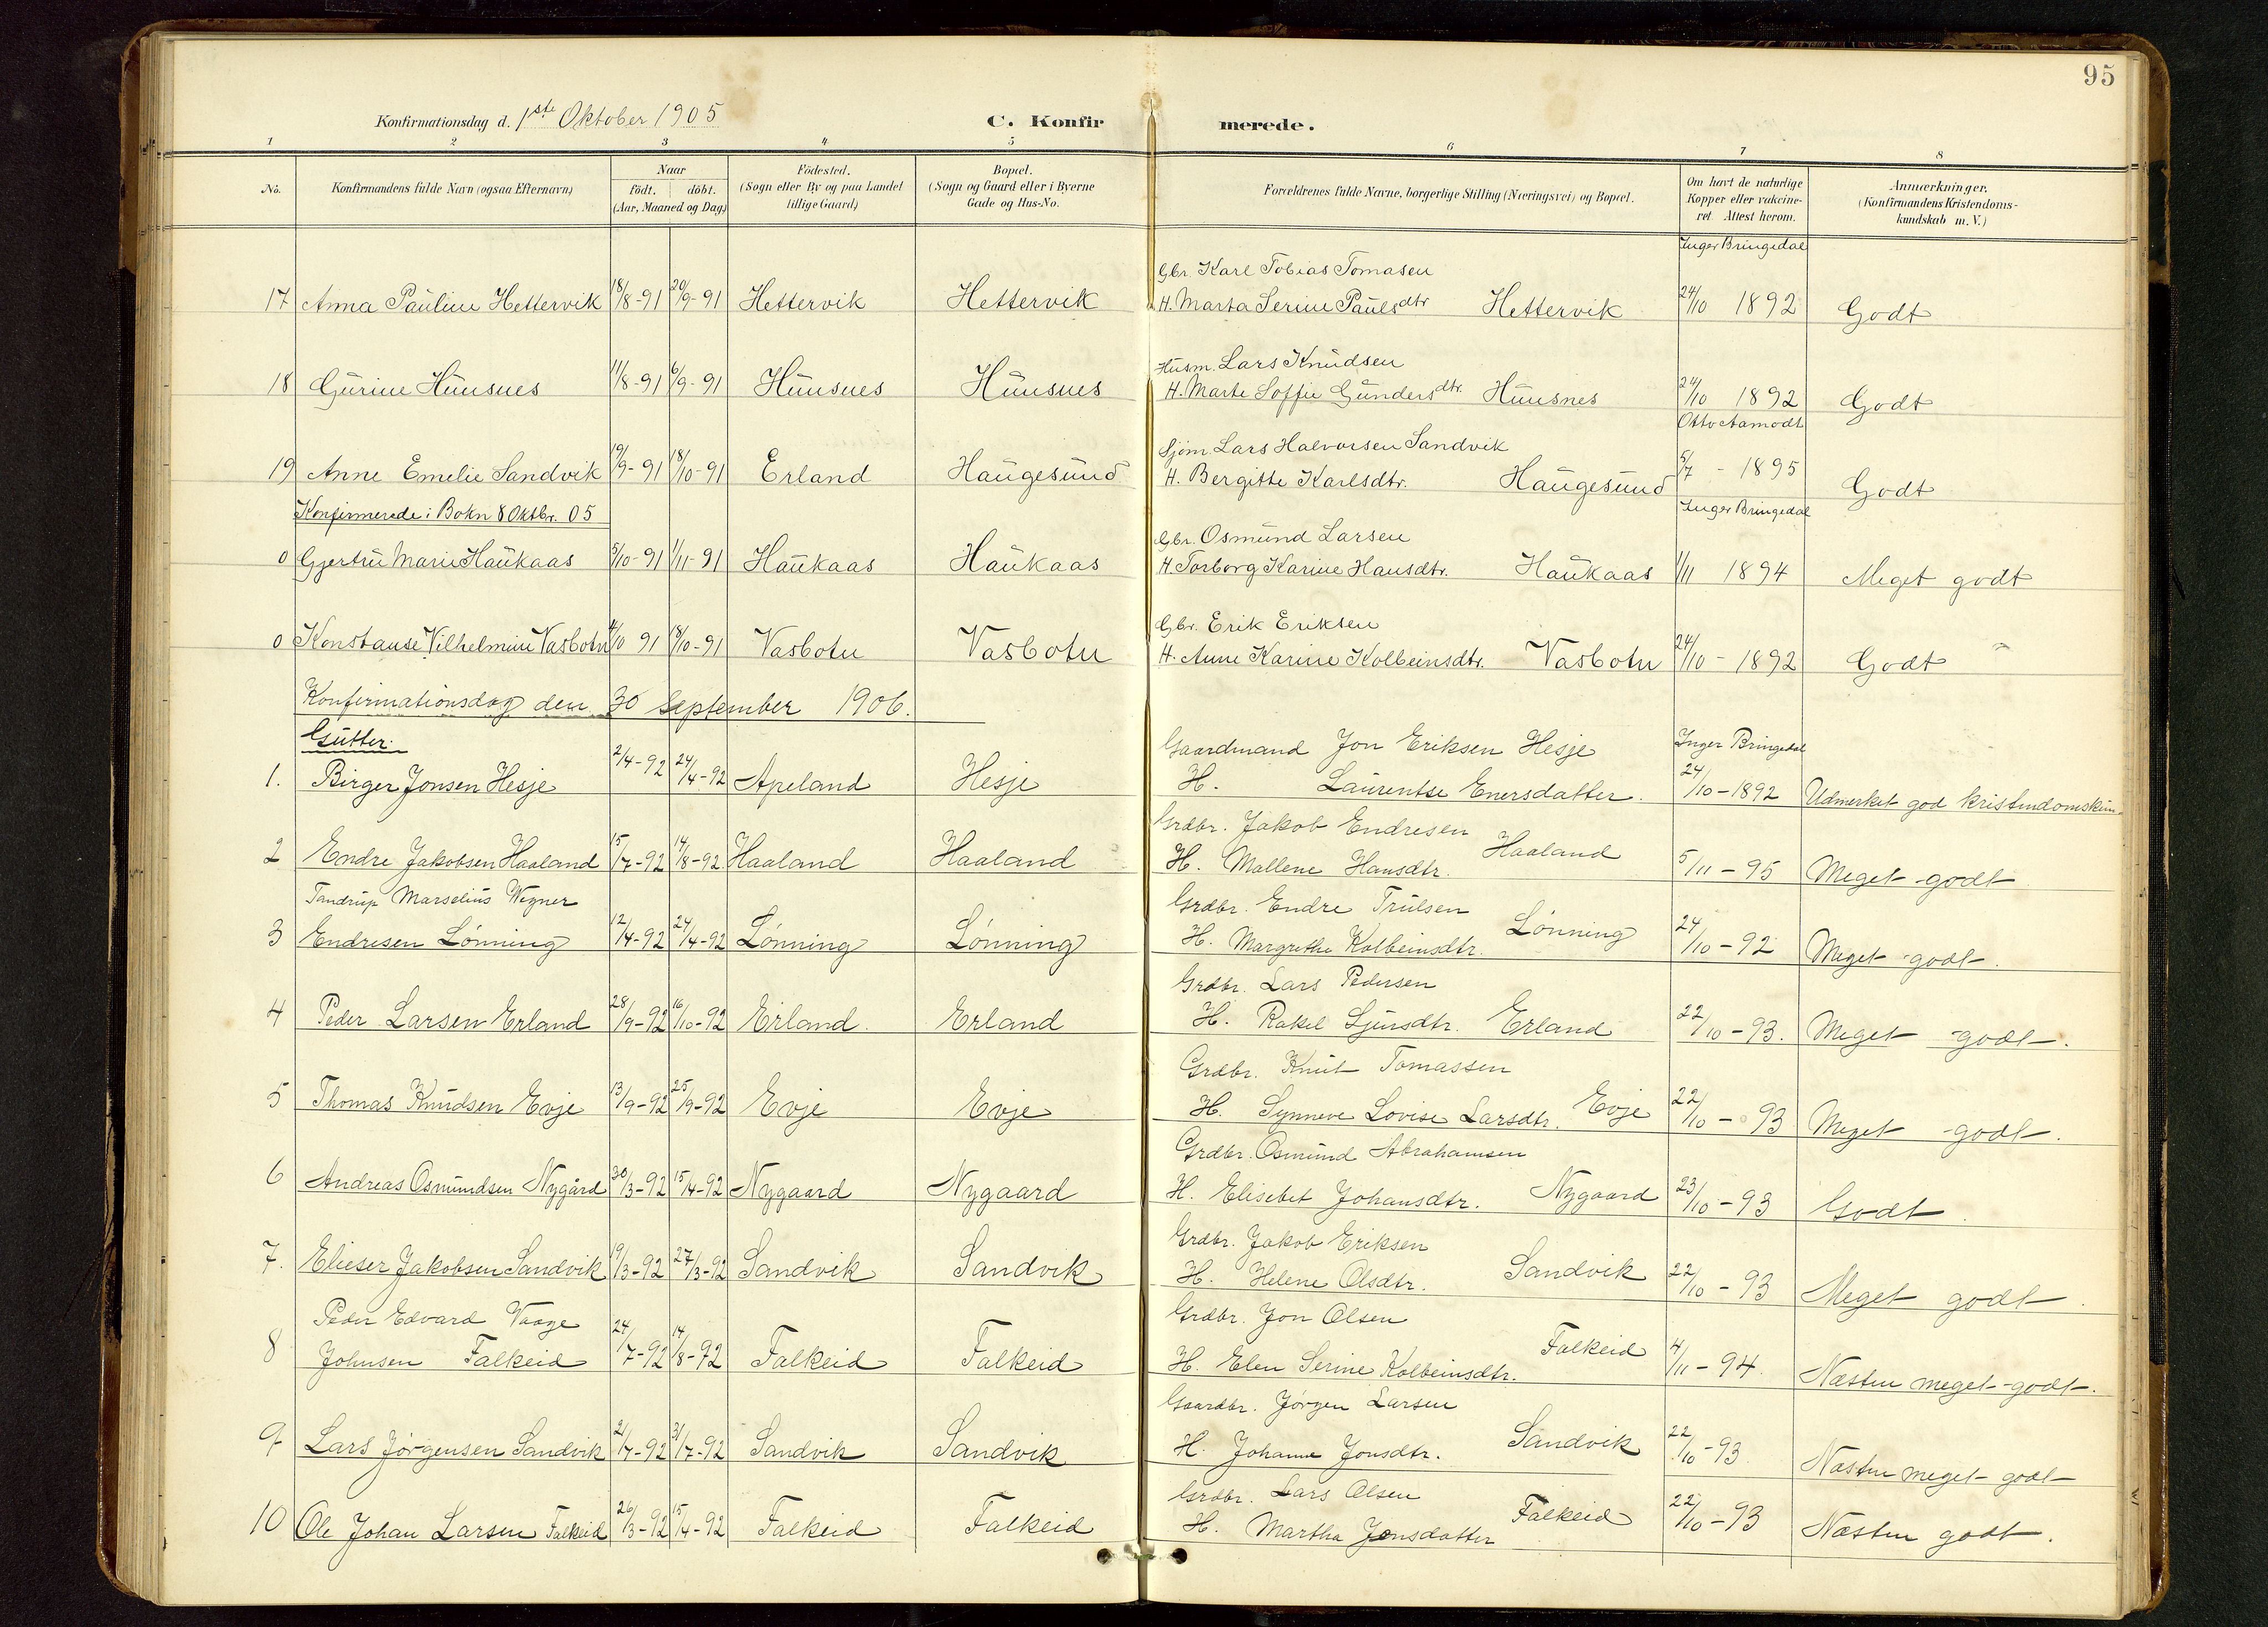 95
Konfirmationsdag d. 1ste Oktober 1905 C. Konfirmerede.
1 2 3 4 5 6 7 8
No. Konfirmandens fulde Navn (ogsaa Efternavn) Naar födt. döbt. (Aar, Maaned og Dag) Födested. (Sogn eller By og paa Landet tillige Gaard) Bopæl. (Sogn og Gaard eller i Byerne Gade og Hus-No. Forældrenes fulde Navne, borgerlige Stilling (Næringsvei) og Bopæl. Om havt de naturlige Kopper eller vakcineret. Attest herom. Anmærkninger. (Konfirmandens Kristendomskundskab m. V.)
Inger Bringedal
Gbr. Karl Tobias Tomasen
17 Anna Pauline Hettervik 18/8-91 20/9-91 Hettervik Hettervik H. Marta Serine Paulsdtr Hettervik 24/10 1892 Godt
Husm. Lars Knudsen
18 Gurine Huusnes 11/8-91 6/9-91 Huusnes Huusnes H. Marte Soffie Gundersdtr. Huusnes 24/10 1892 Godt
Otto Aamodt
Sjøm Lars Halvorsen Sandvik
19 Anne Emelie Sandvik 19/9-91 18/10-91 Erland Haugesund H. Bergitte Karlsdtr. Haugesund 5/7 - 1895 Godt
Konfirmerede i Bokn 8 Oktbr. 05 Inger Bringedal
Gbr. Osmund Larsen
0 Gjertru Marie Haukaas 5/10-91 1/11-91 Haukaas Haukaas H. Torborg Karine Hansdtr. Haukaas 1/11 1894 Meget godt
Gbr. Erik Eriksen
0 Konstanse Vilhelmine Vasbotn 4/10 91 18/10-91 Vasbotn Vasbotn H. Anne Karine Kolbeinsdtr. Vasbotn 24/10 - 1892 Godt
Konfirmationsdag den 30 September 1906.
Gutter.
Gaardmand Jon Eriksen Hesje Inger Bringedal
1. Birger Jonsen Hesje 2/4-92 24/4-92 Apeland Hesje H. Laurentse Enersdatter. 24/10-1892 Udmerket god kristendomskun
Grdbr. Jakob Endresen
2 Endre Jakobsen Haaland 15/7-92 14/8-92 Haaland Haaland H. Mallene Hansdtr. Haaland 5/11-95 Meget godt
Tandrup Marselius Wegner Grdbr. Endre Trulsen
3 Endresen Lønning 12/4-92 24/4-92 Lønning Lønning H. Margrethe Kolbeinsdtr. Lønning 24/10-92 Meget godt.
Grdbr. Lars Pedersen
4 Peder Larsen Erland 28/9-92 16/10-92 Erland. Erland H. Rakel Sjursdtr. Erland 22/10-93. Meget godt.
Grdbr. Knut Tomassen
5 Thomas Knudsen Evje 13/9-92 25/9-92 Evje Evje H. Synneve Lovise Larsdtr. Evje 22/10-93 Meget godt.
Grdbr. Osmund Abrahamsen
6 Andreas Osmundsen Nygård 30/3-92 15/4-92 Nygaard Nygaard H. Elisebet Johansdtr. Nygaard 23/10-93 Godt.
Grdbr. Jakob Eriksen
7. Elieser Jakobsen Sandvik 19/3-92 27/3-92 Sandvik Sandvik H. Helene Olsdtr. Sandvik 22/10-93 Meget godt.
Peder Edvard Vaage Grdbr. Jon Olsen
8 Johnsen Falkeid 24/7-92 14/8-92 Falkeid Falkeid H. Elen Serine Kolbeinsdtr. Falkeid 4/11-94. Næsten meget godt.
Gaardbr. Jørgen Larsen
9 Lars Jørgensen Sandvik 2/7-92 31/7-92 Sandvik Sandvik H. Johanne Jonsdtr. Sandvik 22/10-93. Næsten meget godt
Grdbr. Lars Olsen
10 Ole Johan Larsen Falkeid 26/3-92 15/4-92 Falkeid Falkeid H. Martha Jonsdatter Falkeid 22/10-93 Næsten godt.